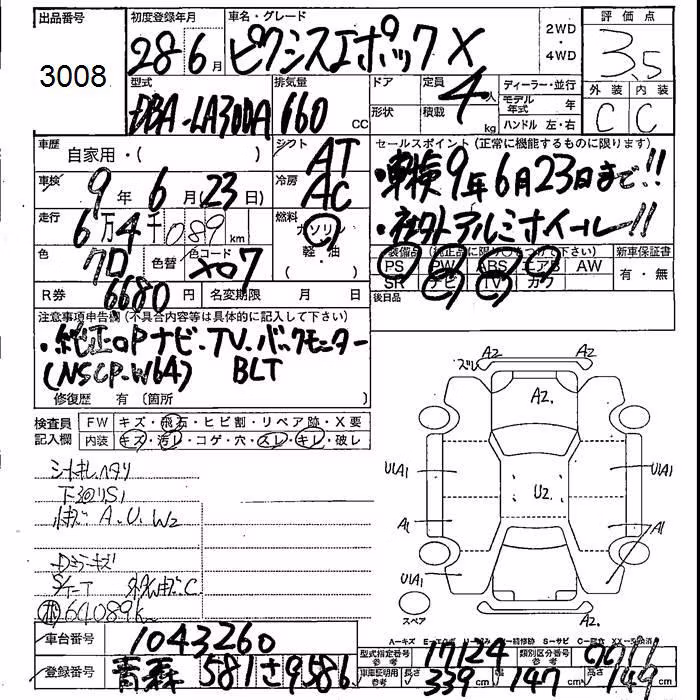 出品番号 初度登録年月 車名・グレード 評価点
3008 28 6月 ピクシスエポック X 2WD・4WD 3.5
型式 排気量 ドア 定員 ディーラー・並行 外装 内装
DBA-LA300A 660cc 4人 形状 積載 kg モデル年式 年 C C
ハンドル 左・右
車歴 自家用・( ) シフト AT セールスポイント(正常に機能するものに限ります)
車検 9年6月(23日) 冷房 AC ・車検9年6月23日まで!!
走行 6万4千089km 燃料 ガソリン 軽・油 ・社外アルミホイール!!
色 クロ 色替 色コード X07 装備品(純正品に限り○をつけて下さい) 新車保証書
PS PW ABS エアB AW 有・無
R券 6680円 名変期限 月 日 SR ナビ TV カワ
後日品
注意事項申告欄(不具合内容等は具体的に記入して下さい)
・純正OPナビ・TV・バックモニター
(NSCP-W64) BLT
修復歴 有(箇所 )
検査員記入欄 FW キズ・飛石・ヒビ割・リペア跡・X要
内装 キズ・汚レ・コゲ・穴・スレ・キレ・破レ
シートキレ ヘタリ
下廻りS1
A.U.W2
Dミラーキズ
64089K
A2 A2
A2.
U1A1 U2 U1A1
A1 A1
U1A1
A2.
スペア
車台番号 1043260
登録番号 青森 581 さ 9586
型式指定番号 参考 17124 類別区分番号 参考
車庫証明用 参考 長さ 339cm 幅 147cm 高さ 149cm